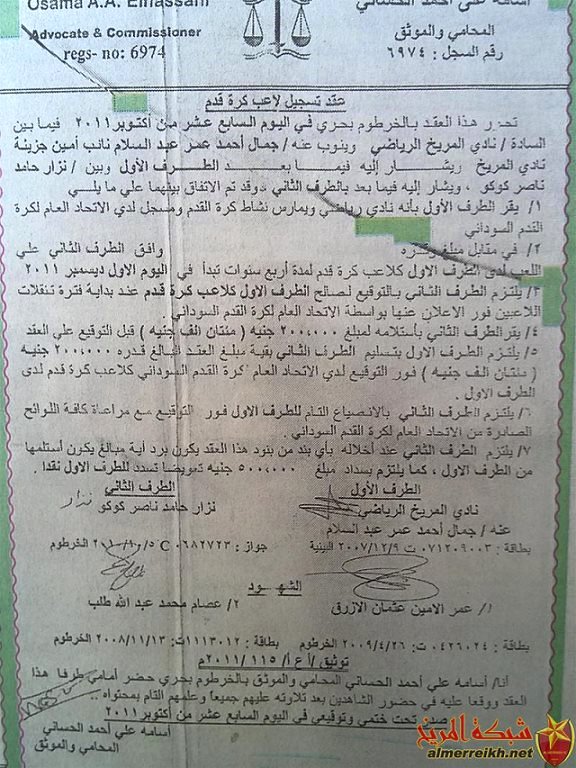 Osama A.A. Elhassani
أسامة علي أحمد الحساني
Advocate & Commissioner
المحامي والموثق
regs- no: 6974
رقم السجل : ٦٩٧٤
عقد تسجيل لاعب كرة قدم
تحرر هذا العقد بالخرطوم بحري في اليوم السابع عشر من أكتوبر ٢٠١١ فيما بين
السادة / نادي المريخ الرياضي وينوب عنه / جمال أحمد عمر عبد السلام نائب أمين خزينة
نادي المريخ ويشار إليه فيما بعد الطرف الأول وبين / نزار حامد
ناصر كوكو ، ويشار إليه فيما بعد بالطرف الثاني وقد تم الاتفاق بينهما علي ما يلي
١/ يقر الطرف الأول بأنه نادي رياضي ويمارس نشاط كرة القدم ومسجل لدي الاتحاد العام لكرة
القدم السوداني
٢/ في مقابل مبلغ وقدره وافق الطرف الثاني علي
اللعب لدى الطرف الاول كلاعب كرة قدم لمدة أربع سنوات تبدأ في اليوم الاول ديسمبر ٢٠١١
٣/ يلتزم الطرف الثاني بالتوقيع لصالح الطرف الاول كلاعب كرة قدم عند بداية فترة تنقلات
اللاعبين فور الاعلان عنها بواسطة الاتحاد العام لكرة القدم السوداني .
٤/ يقر الطرف الثاني بأستلامه لمبلغ ٢٠٠,٠٠٠ جنيه ( مئتان الف جنيه ) قبل التوقيع علي العقد
٥/ يلتزم الطرف الاول بتسليم الطرف الثاني بقية مبلغ العقد البالغ قدره ٢٠٠,٠٠٠ جنيه
( مئتان الف جنيه ) فور التوقيع لدي الاتحاد العام لكرة القدم السوداني كلاعب كرة قدم لدى
الطرف الاول .
٦/ يلتزم الطرف الثاني بالانصياع التام للطرف الاول فور التوقيع مع مراعاة كافة اللوائح
الصادرة من الاتحاد العام لكرة القدم السوداني.
٧/ يلتزم الطرف الثاني عند أخلاله بأي بند من بنود هذا العقد يكون برد أية مبالغ يكون أستلمها
من الطرف الاول ، كما يلتزم بسداد مبلغ ٥٠٠,٠٠٠ جنيه تعويضا تسدد للطرف الاول نقدا .
الطرف الأول الطرف الثاني
نادي المريخ الرياضي نزار حامد ناصر كوكو نزار
عنه / جمال أحمد عمر عبد السلام
بطاقة : ٠٧١٢٠٩٠٠٣ ت ٢٠٠٧/١٢/٩ البينية جواز : C ٠٦٨٢٧٢٣ الخرطوم
الشهود
١/ عمر الامين عثمان الازرق ٢/ عصام محمد عبد الله طلب
بطاقة : ٠٤٢٦٠٢٤ ت: ٢٠٠٩/٤/٢٦ الخرطوم بطاقة : ١١١٣٠١٢ ت: ٢٠٠٨/١١/١٣ الخرطوم
توثيق / أ ع أ / ١١٥ / ٢٠١١م
أنا/ أسامه علي أحمد الحساني المحامي والموثق بالخرطوم بحري حضر أمامي طرفا هذا
العقد ووقعا عليه في حضور الشاهدين بعد تلاوته عليهم جميعاً وعلمهم التام بمحتواه..
صدر تحت ختمي وتوقيعي في اليوم السابع عشر من أكتوبر ٢٠١١
أسامه علي أحمد الحساني
المحامي والموثق
شبكة المريخ
almerreikh.net